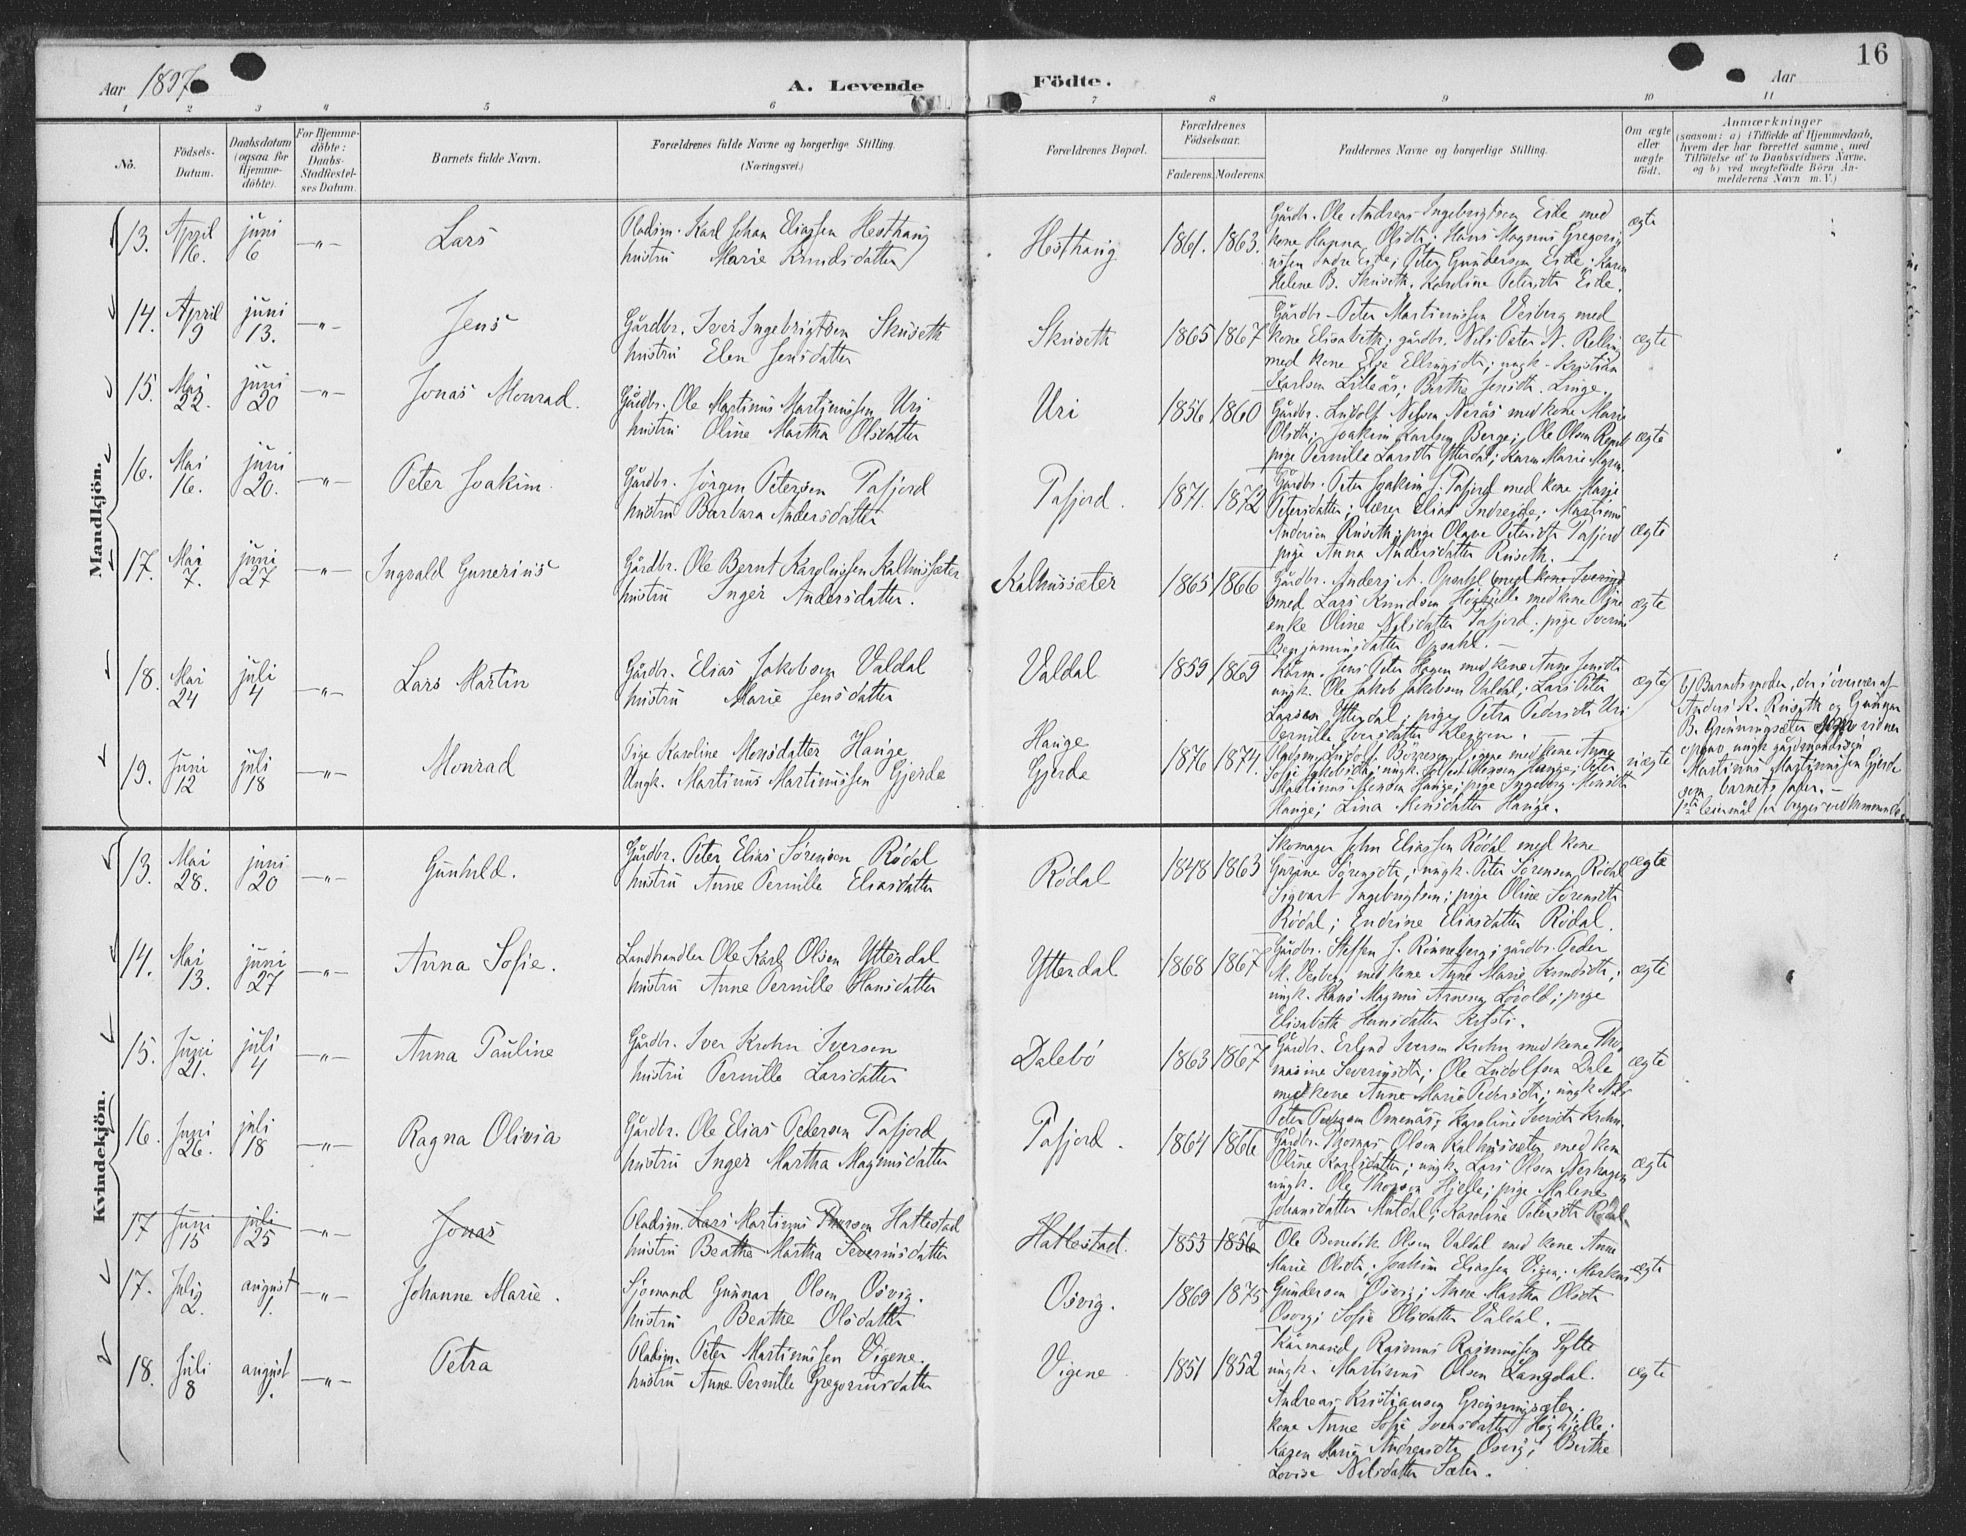 16
Aar 1897
A. Levende Födte.
Aar
1 2 3 4 5 6 7 8 9 10 11
No.
Födsels-Datum.
Daabsdatum (ogsaa for Hjemmedöbte).
For Hjemmedöbte: Daabs-Stadfæstelses Datum.
Barnets fulde Navn.
Forældrenes fulde Navne og borgerlige Stilling. (Næringsvei.)
Forældrenes Bopæl.
Forældrenes Födselsaar.
Faderens. Moderens.
Faddernes Navne og borgerlige Stilling.
Om ægte eller uægte födt.
Anmærkninger
(saasom: a) i Tilfælde af Hjemmedaab,
hvem der har forrettet samme, med
Tilföielse af to Daabsvidners Navne,
og b) ved uægtefödte Börn An-
melderens Navn m. V.)
Mandkjön.
13. April 16. juni 6 —„— Lars
Pladsm. Karl Johan Eliassen Hesthaug
hustru Marie Knudsdatter
Hesthaug 1861. 1863.
Gårdbr. Ole Andreas Ingebrigtsen Eide med
kone Hanna Olsdtr; Hans Magnus Gregorius
Indre Eide; Peter Gundersen Eide; Karen
Helene B. Skuseth. Karoline Petersdtr Eide.
ægte
14. April 9 juni 13. —„— Jens
Gårdbr. Iver Ingebrigtsen Skuseth
hustru Elen Jensdatter
Skuseth 1865 1867
Gårdbr. Peter Martinussen Veiberg med
kone Elisabeth; gårdbr. Nils Peter N. Relling
med kone Else Ellingsdtr; ungk. Kristian
Karlsen Lilleås; Berthe Jensdtr. Linge.
ægte
15. Mai 22. juni 20 —„— Jonas Monrad.
Gårdbr. Ole Martinus Martinussen Uri
hustru Oline Martha Olsdatter
Uri 1856 1860
Gårdbr. Ludolf Nilsen Nerås med kone Marie
Olsdtr; Joakim Karlsen Berge; Ole Olsen
pige Pernille Larsdtr Ytterdal; Karen Marie
ægte
16. Mai 16. juni 20. —„— Peter Joakim.
Gårdbr. Jörgen Petersen Tafjord
hustru Barbara Andersdatter
Tafjord. 1871. 1872
Gårdbr. Peter Joakim J. Tafjord med kone Marie
Petersdatter; lærer Elias Indreeide; Martinus
Andersen Ruseth; pige Olave Petersdtr Tafjord
pige Anna Andersdatter Ruseth.
ægte
17. Mai 7. juni 27 —„— Ingvald Gunerius
Gårdbr. Ole Bernt Karolussen Kalhussæter
hustru Inger Andersdatter.
Kalhussæter 1865 1866
Gårdbr. Anders A. Opsahl med kone
smed Lars Knudsen Høghjelle med kone Oline
enke Oline Nilsdatter Tafjord; pige Severine
Benjaminsdatter Opsahl. —
ægte
18. Mai 24 juli 4 —„— Lars Martin
Gårdbr. Elias Jakobsen Valdal
hustru Marie Jensdatter
Valdal 1859 1869
Kårm. Jens Peter Hagen med kone Anne Jensdtr
ungk. Ole Jakob Jakobsen Valdal; Lars Peter
Larsen Ytterdal; pige Petra Pedersdtr Uri
Pernille Iversdatter Kleppen.
ægte
19. Juni 12 juli 18 —„— Monrad
Pige Karoline Monsdatter Hauge
Ungk. Martinus Martinussen Gjerde
Hauge
Gjerde 1876 1874.
Pladsm. Ludolf Börresen Vigene med kone Anne
Sofie Jakobsdtr; ungk. Monsen Hauge; Peter
Martinus Monsen Hauge; pige Ingeborg Monsdtr
Hauge; Lina Monsdatter Hauge.
uægte
b) Barnets moder, der i overvær af
Anders K. Ruseth og Gunnar
B. Grönningsæter som vidner
opgav ungk. gårdmandssön
Martinus Martinussen Gjerde
som barnets fader. —
1ste leiermål for begges vedkommende.
Kvindekjön.
13. Mai 28. juni 20 —„— Gunhild.
Gårdbr. Peter Elias Sörensen Rödal
hustru Anne Pernille Eliasdatter
Rödal 1848 1863
Skomager John Eliassen Rödal med kone
Gurine Sörensdtr, ungk. Peter Sörensen Rödal
Sigvart Ingebrigtsen; pige Oline Sörensdtr
Rödal; Endrine Eliasdatter Rödal.
ægte
14. Mai 13. juni 27 —„— Anna Sofie.
Landhandler Ole Karl Olsen Ytterdal
hustru Anne Pernille Hansdatter
Ytterdal 1868 1867
Gårdbr. Steffen J. Rönneberg; gårdbr. Peder
M. Veiberg med kone Anne Marie Knudsdtr;
ungk. Hans Magnus Arnesen Lövold; pige
Elisabeth Hansdatter
ægte
15. Juni 21. juli 4 —„— Anna Pauline
Gårdbr. Iver Krohn Iversen
hustru Pernille Larsdatter
Dalebö 1863 1867
Gårdbr. Erland Iversen Krohn med kone Tho-
masine Severinsdtr; Ole Ludolfsen Dale
med kone Anne Marie Pedersdtr; ungk Nils
Peter Pedersen Omenås; Karoline Iversdtr Krohn.
ægte
16. Juni 26. juli 18 —„— Ragna Olivia
Gårdbr. Ole Elias Pedersen Tafjord
hustru Inger Martha Magnusdatter
Tafjord. 1864 1866
Gårdbr. Thomas Olsen Kalhussæter med kone
Oline Karlsdatter; ungk. Lars Olsen Nerhagen
ungk. Ole Thorsen Hjelle; pige Malene
Johansdatter Muldal; Karoline Petersdtr
ægte
17 Juni 15 juli 25 —„— Jonas
Pladsm. Lars Martinus Thorsen Hattestad
hustru Beathe Martha Severinsdatter
Hattestad. 1853 1856
17. Julij 2. august 1. —„— Johanne Marie.
Sjømand Gunnar Olsen Osvig.
hustru Beathe Olsdatter
Osvig. 1869 1875
Ole Benedik Olsen Valdal med kone Anne
Marie Olsdtr; Joakim Eliassen Vigen; Markus
Gundersen Osvig; Anne Martha Olsdtr
Osvig; Sofie Olsdatter Valdal. —
ægte
18. Juli 8 august 1. —„— Petra
Pladsm. Peter Martinussen Vigene.
hustru Anne Pernille Gregoriusdatter
Vigene 1851 1852
Kårmand Rasmus Rasmussen Sylte
ungk. Martinus Olsen Langdal.
Andreas Kristiansen Grönningsæter.
kone Anne Sofie Iversdatter Høghjelle;
Karen Marie Andreasdtr Osvig; Berthe
Lovise Nilsdatter Sæter.
ægte